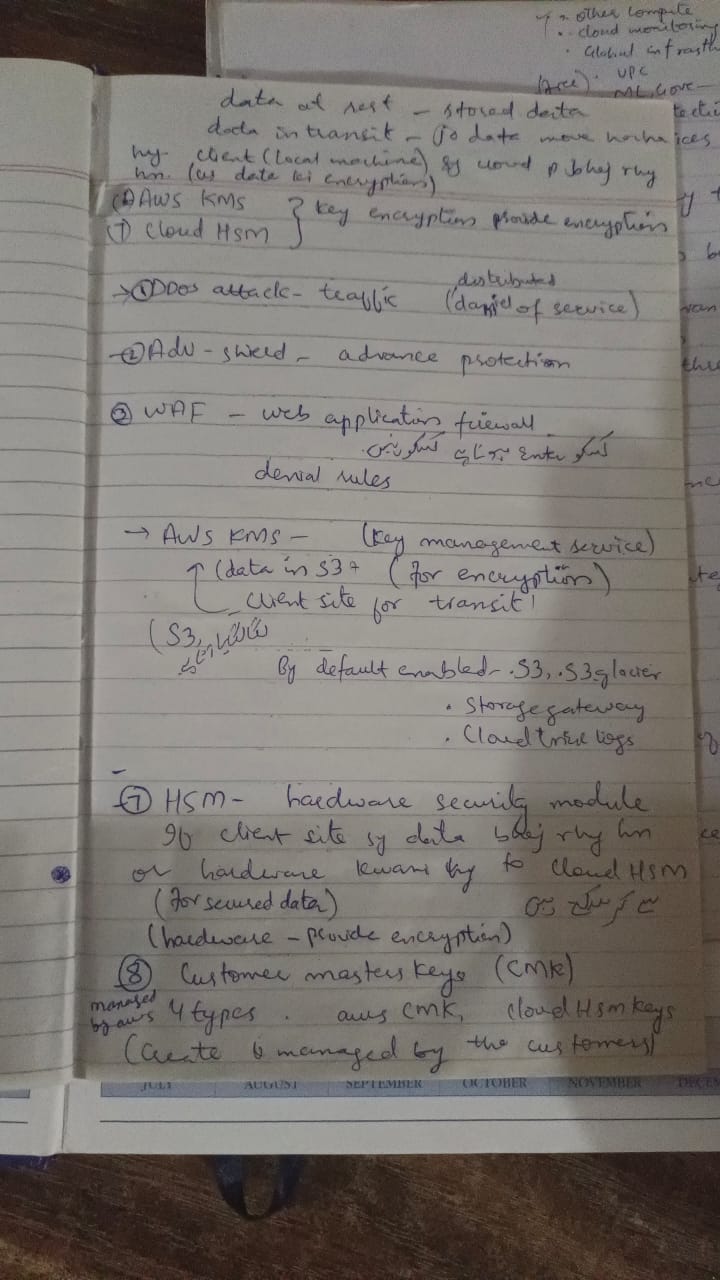 other compute
cloud monitoring
Global infrastr
VPC
data at rest - stored data
data in transit - jo data move horha
hy client (local machine) sy cloud p bhej rhy
hn. (us data ki encryption)
AWS KMS
⑦ Cloud HSM } key encryption provide encryption
→ ① DDos attack - traffic (distributed of service)
② Adv - sheild - advance protection
③ WAF - web application firewall
Enter
denial rules
→ AWS KMS - (key management service)
(data in S3 + (for encryption)
client site for transit
(S3,
By default enabled - .S3, .S3 glacier
. Storage gateway
. Cloud trial logs
⑦ HSM - hardware security module
If client site sy data bhej rhy hn
or hardware kwani hy to Cloud HSM
(for secured data)
(hardware - provide encryption)
⑧ Customer masters keys (CMK)
managed by aws 4 types . aws CMK, Cloud Hsm keys
(Create & managed by the customers)
JULY AUGUST SEPTEMBER OCTOBER NOVEMBER DECEM